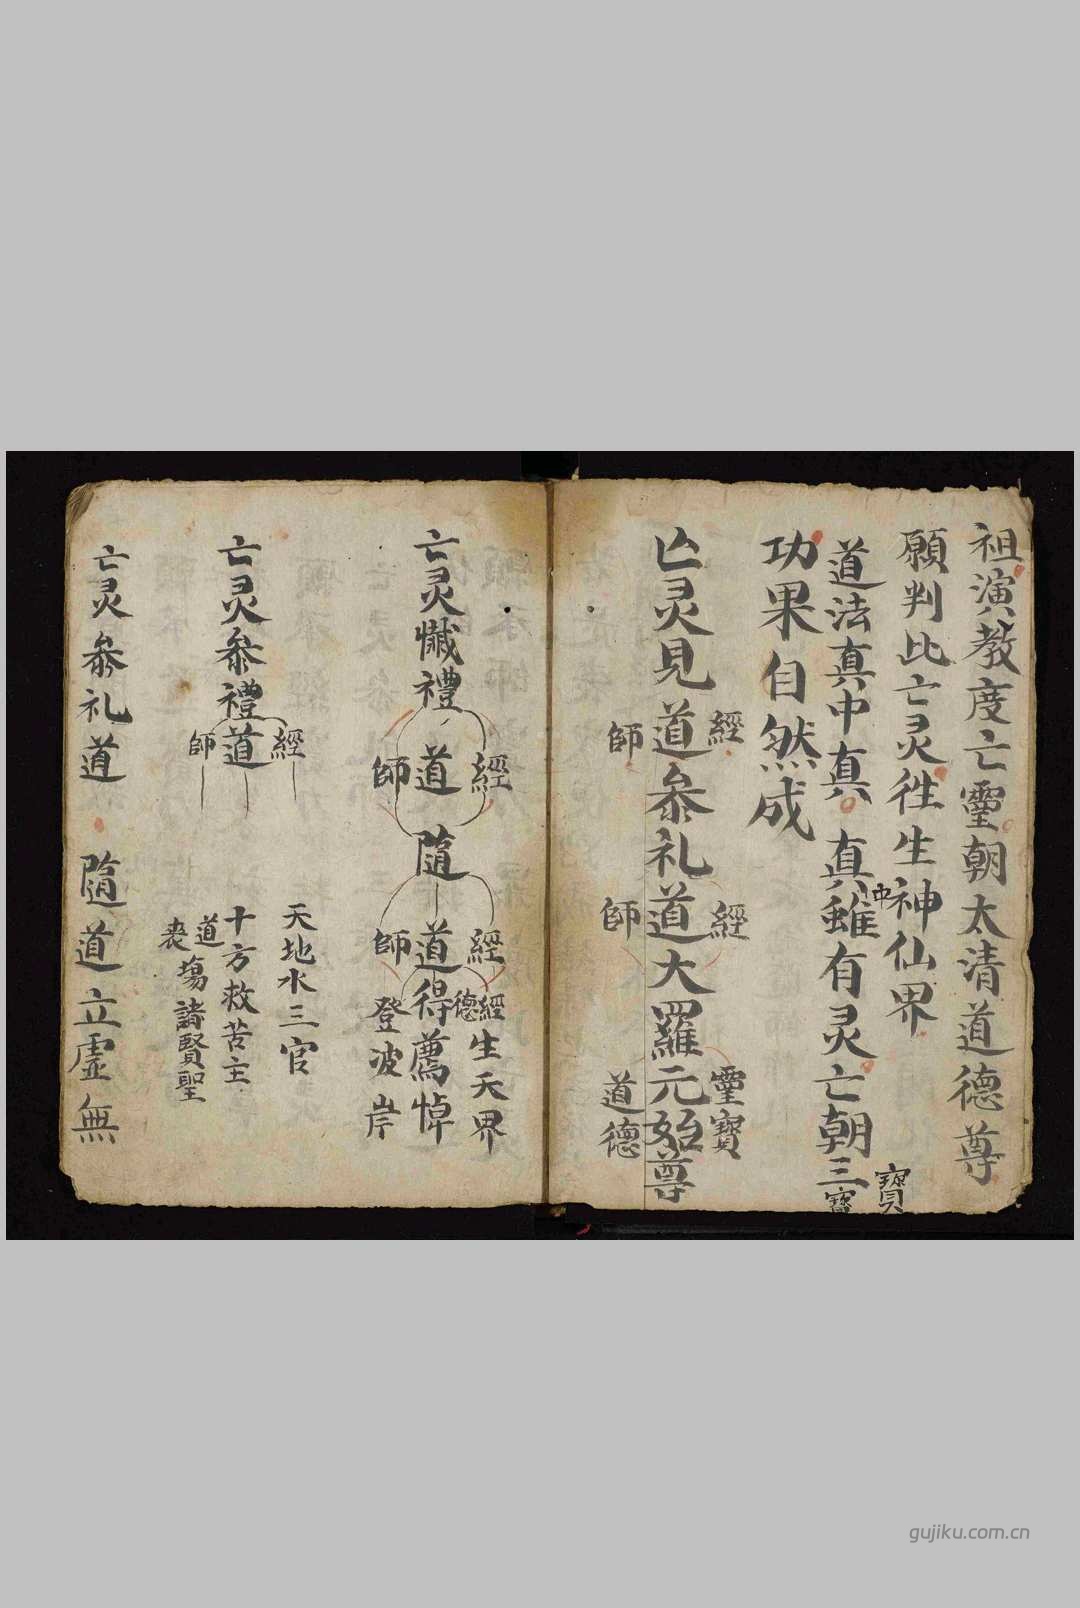 祖演教度亡靈朝太清道德尊
願判比亡灵徃生神仙界
道法真中真 真中雖有灵亡朝三寶
寶
功果自然成
經 經 靈寶
亾灵見道参礼道大羅元始尊
師 師 道德
經 經 經生天界
亡灵懴禮 道 隨 道得薦悼
德
師 師 登波岸
經 天地水三官
亡灵参禮道 十方救苦主
師 道塲諸賢聖
亡灵参礼道 隨道立虛無
gujiku.com.cn